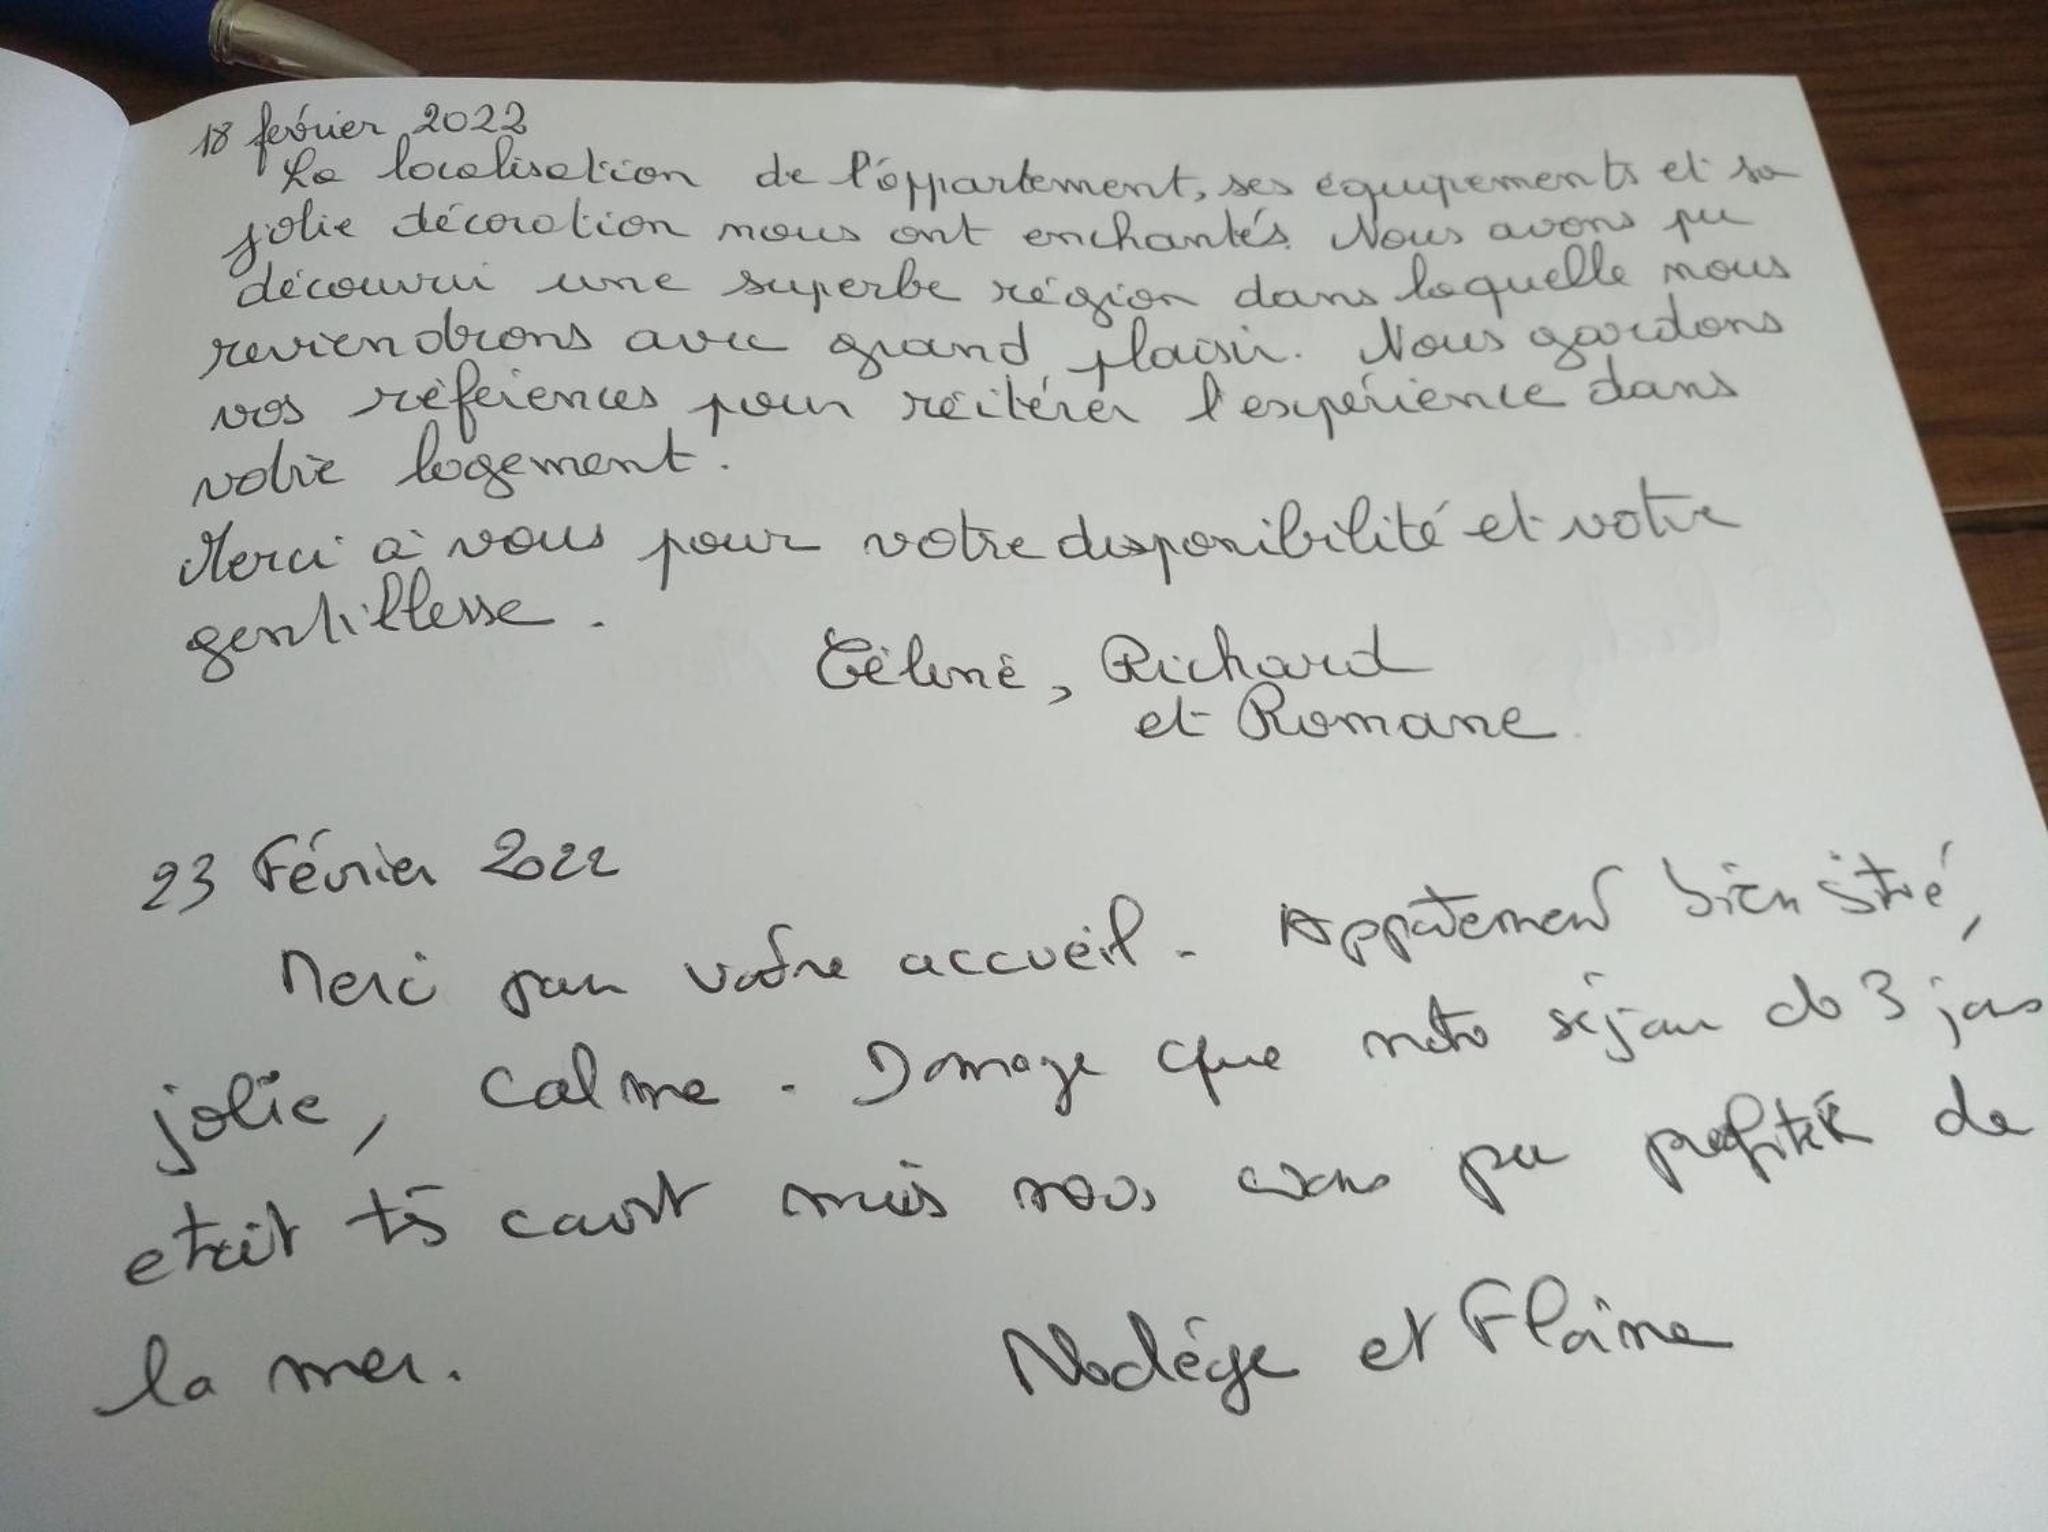 18 février 2022
La localisation de l'appartement, ses équipements et sa
jolie décoration nous ont enchantés. Nous avons pu
découvrir une superbe région dans laquelle nous
reviendrons avec grand plaisir. Nous gardons
vos références pour réitérer l'expérience dans
votre logement.
Merci à vous pour votre disponibilité et votre
gentillesse.
Céline, Richard
et Romane
23 Février 2022
Merci pour votre accueil. Appartement bien situé,
jolie, calme. Domage que notre séjour de 3 jours
etait très court mais nous avons pu profiter de
la mer.
Nadége et